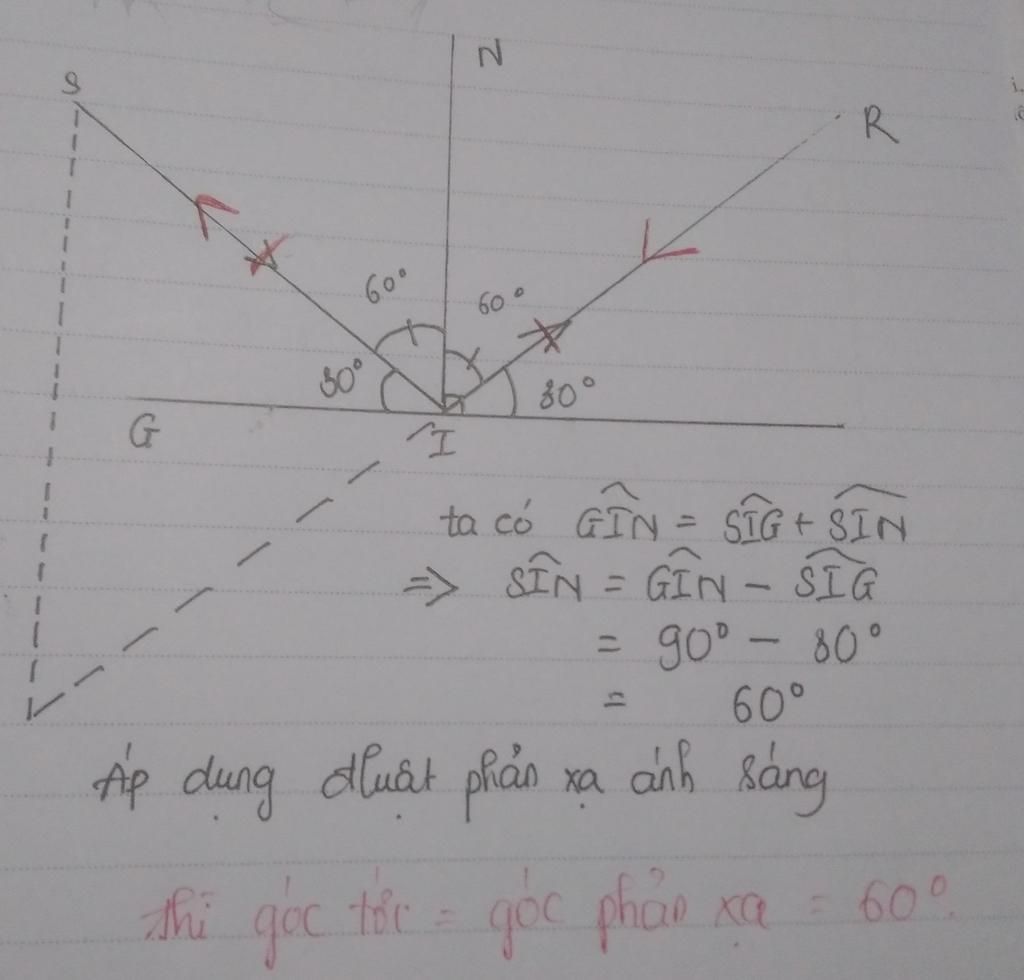 S
N
R
60°
60°
30°
30°
G
I
ta có GÎN = SÎG + SÎN
=> SÎN = GÎN - SÎG
= 90° - 30°
= 60°
Áp dụng đluật phản xạ ánh sáng
thì góc tới = góc phản xạ = 60°.